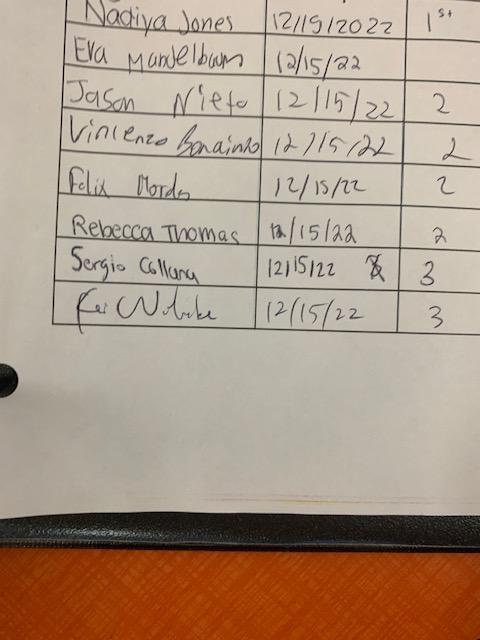 Nadiya Jones 12/15/2022 1st
Eva Mandelbaum 12/15/22
Jason Nieto 12/15/22 2
Vincenzo 12/15/22 2
Felix 12/15/22 2
Rebecca Thomas 12/15/22 2
Sergio Collana 12/15/22 3
12/15/22 3